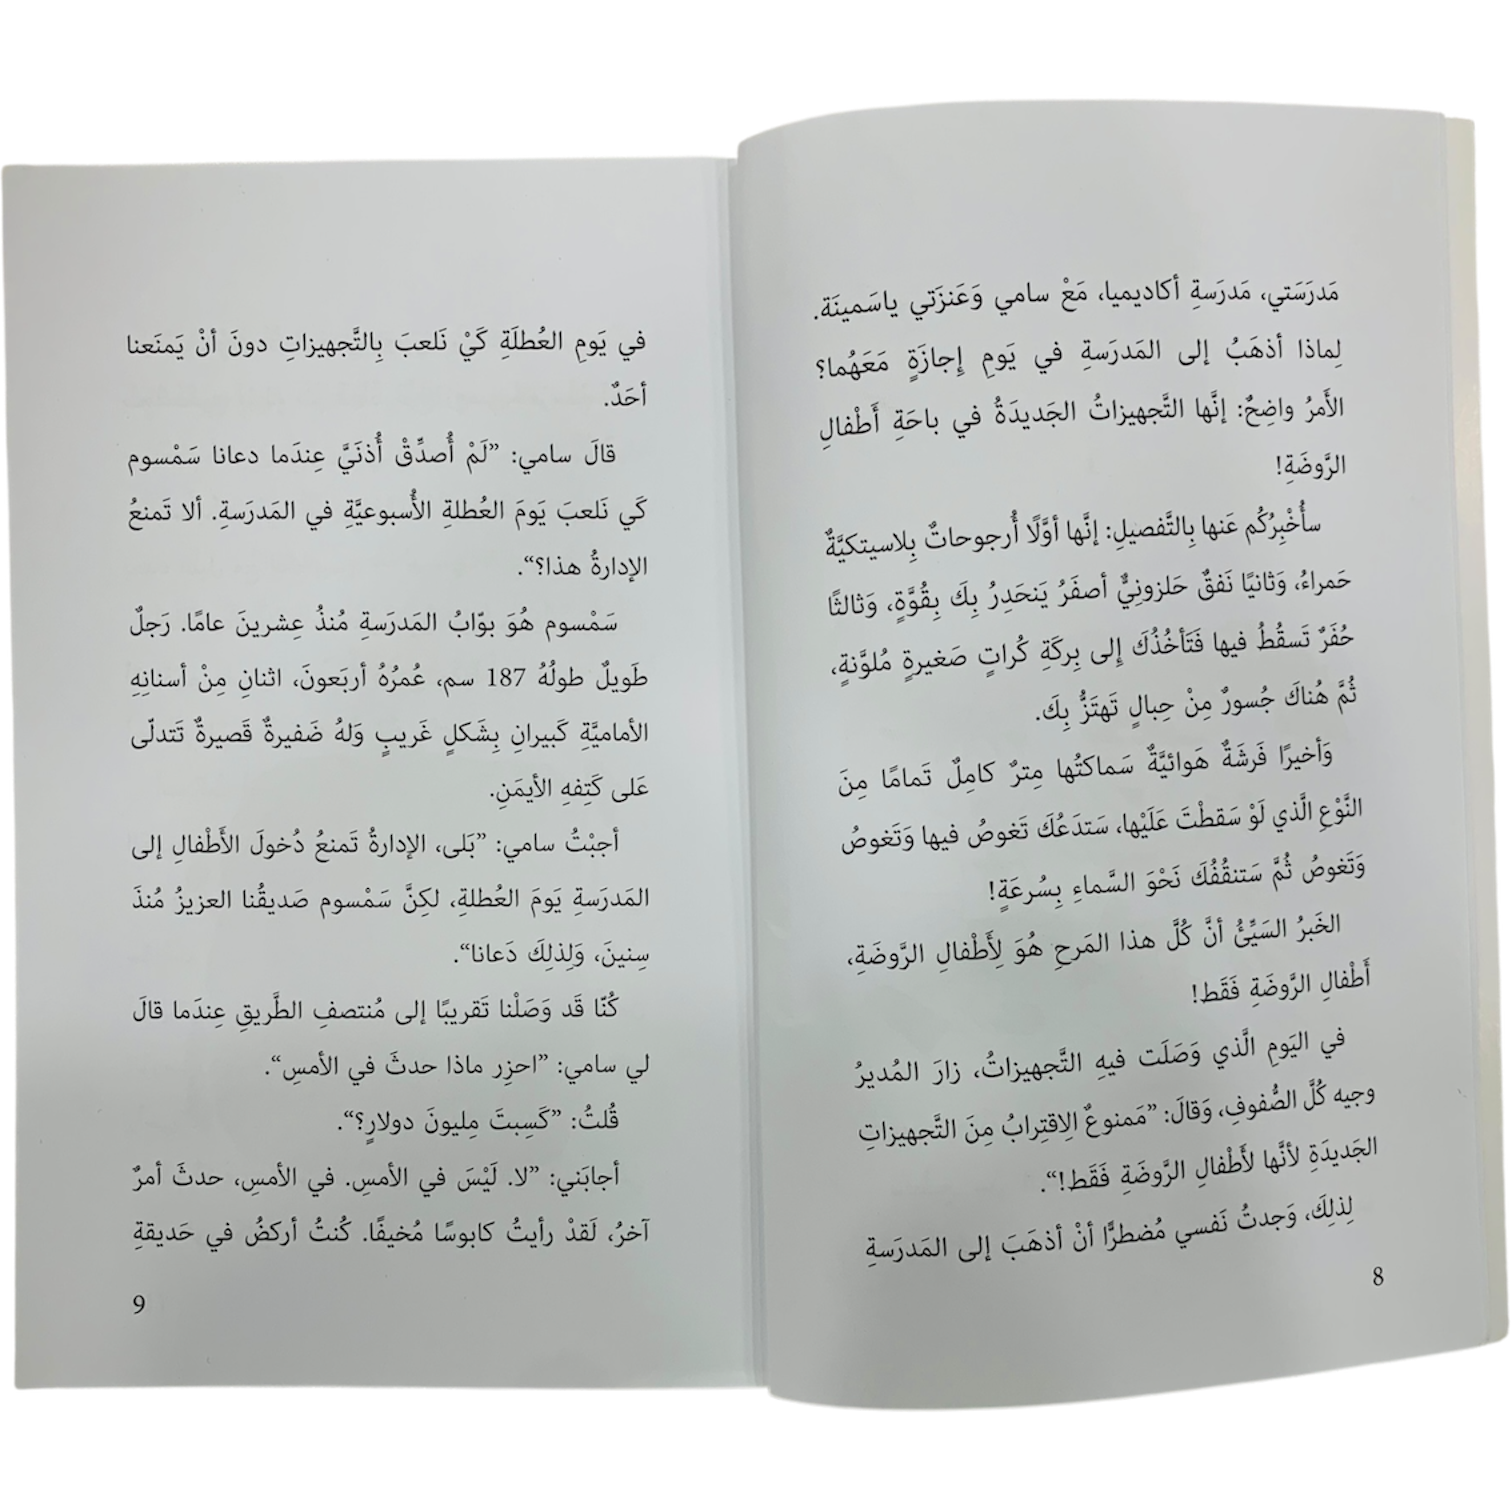 مَدرَسَتي، مَدرَسَةِ أكاديميا، مَعْ سامي وَعَنزَتي ياسَمينَة.
لِماذا أذهَبُ إلى المَدرَسةِ في يَومِ إجازَةٍ مَعَهُما؟
الأَمرُ واضِحٌ: إنَّها التَّجهيزاتُ الجَديدَةُ في باحَةِ أَطْفالِ
الرَّوضَةِ!
سأُخْبِرُكُم عَنها بِالتَّفصيلِ: إنَّها أوَّلًا أُرجوحاتٌ بِلاسيتكيَّةٌ
حَمراءُ، وَثانيًا نَفقٌ حَلزونِيٌّ أصفَرُ يَنحَدِرُ بِكَ بِقُوَّةٍ، وَثالثًا
حُفَرٌ تَسقُطُ فيها فَتَأخُذُكَ إِلى بِركَةِ كُراتٍ صَغيرةٍ مُلوَّنةٍ،
ثُمَّ هُناكَ جُسورٌ مِنْ حِبالٍ تَهتَزُّ بِكَ.
وَأخيرًا فَرشَةٌ هَوائيَّةٌ سَماكتُها مِترٌ كامِلٌ تَمامًا مِنَ
النَّوْعِ الَّذي لَوْ سَقطْتَ عَلَيْها، سَتدَعُكَ تَغوصُ فيها وَتَغوصُ
وَتَغوصُ ثُمَّ سَتنقُفُكَ نَحْوَ السَّماءِ بِسُرعَةٍ!
الخَبرُ السَيِّئُ أنَّ كُلَّ هذا المَرحِ هُوَ لِأَطْفالِ الرَّوضَةِ،
أَطْفالِ الرَّوضَةِ فَقَط!
في اليَومِ الَّذي وَصَلَت فيهِ التَّجهيزاتُ، زارَ المُديرُ
وجيه كُلَّ الصُّفوفِ، وَقالَ: ”مَمنوعٌ الِاقتِرابُ مِنَ التَّجهيزاتِ
الجَديدَةِ لأنَّها لأَطْفالِ الرَّوضَةِ فَقَط!“.
لِذلِكَ، وَجدتُ نَفسي مُضطرًّا أنْ أذهَبَ إلى المَدرَسةِ
8
في يَومِ العُطلَةِ كَيْ نَلعبَ بِالتَّجهيزاتِ دونَ أنْ يَمنَعنا
أحَدٌ.
قالَ سامي: ”لَمْ أُصدِّقْ أُذنَيَّ عِندَما دعانا سَمْسوم
كَي نَلعبَ يَومَ العُطلةِ الأُسبوعيَّةِ في المَدرَسةِ. ألا تَمنعُ
الإدارةُ هذا؟“.
سَمْسوم هُوَ بوّابُ المَدرَسةِ مُنذُ عِشرينَ عامًا. رَجلٌ
طَويلٌ طولُهُ 187 سم، عُمرُهُ أربَعونَ، اثنانِ مِنْ أسنانِهِ
الأماميَّةِ كَبيرانِ بِشَكلٍ غَريبٍ وَلهُ ضَفيرةٌ قَصيرةٌ تَتدلّى
عَلى كَتِفهِ الأيمَنِ.
أجبْتُ سامي: ”بَلى، الإدارةُ تَمنعُ دُخولَ الأَطْفالِ إلى
المَدرَسةِ يَومَ العُطلةِ، لكِنَّ سَمْسوم صَديقُنا العزيزُ مُنذَ
سِنينَ، وَلِذلِكَ دَعانا“.
كُنّا قَد وَصَلْنا تَقريبًا إلى مُنتصفِ الطَّريقِ عِندَما قالَ
لي سامي: ”احزِر ماذا حدثَ في الأمسِ“.
قُلتُ: ”كَسِبتَ مِليونَ دولارٍ؟“.
أجابَني: ”لا. لَيْسَ في الأمسِ. في الأمسِ، حدثَ أمرٌ
آخرُ، لَقدْ رأيتُ كابوسًا مُخيفًا. كُنتُ أركضُ في حَديقةِ
9